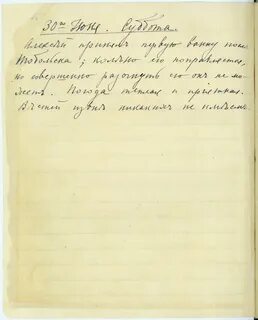 30го Июня. Суббота.
Алексѣй принялъ первую ванну послѣ
Тобольска; колѣно его поправляется,
но совершенно разогнуть его онъ не мо-
жетъ. Погода теплая и прiятная.
Вѣстей извнѣ никакихъ не имѣемъ.